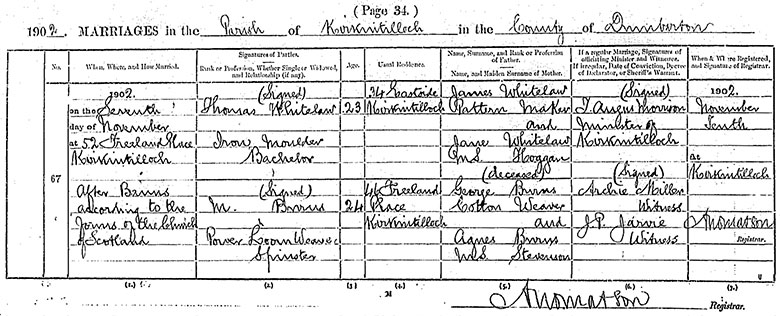 (Page 34.)
1902. MARRIAGES in the Parish of Kirkintilloch in the County of Dumbarton
No.
When, Where, and How Married.
Signatures of Parties.
Rank or Profession, Whether Single or Widowed, and Relationship (if any).
Age.
Usual Residence.
Name, Surname, and Rank or Profession of Father.
Name, and Maiden Surname of Mother.
If a regular Marriage, Signatures of officiating Minister and Witnesses.
If irregular, Date of Conviction, Decree of Declarator, or Sheriff's Warrant.
When & Where Registered, and Signature of Registrar.
67
1902.
on the Seventh
day of November
at 52 Freeland Place
Kirkintilloch
After Banns
according to the
Forms of the Church
of Scotland
(Signed)
Thomas Whitelaw
Iron Moulder
Bachelor
(Signed)
M. Burns
Power Loom Weaver
Spinster
23
24
34 Eastside
Kirkintilloch
Freeland
Place
Kirkintilloch
James Whitelaw
Pattern Maker
and
Jane Whitelaw
M.S. Hoggan
(deceased)
George Burns
Cotton Weaver
and
Agnes Burns
M.S. Stevenson
(Signed)
T. Angus Morrison
Minister of
Kirkintilloch
(Signed)
Archie Miller
Witness
J.P. Jarvie
Witness
1902.
November
Tenth
at
Kirkintilloch
Registrar.
(1.) (2.) (3.) (4.) (5.) (6.) (7.)
Registrar.